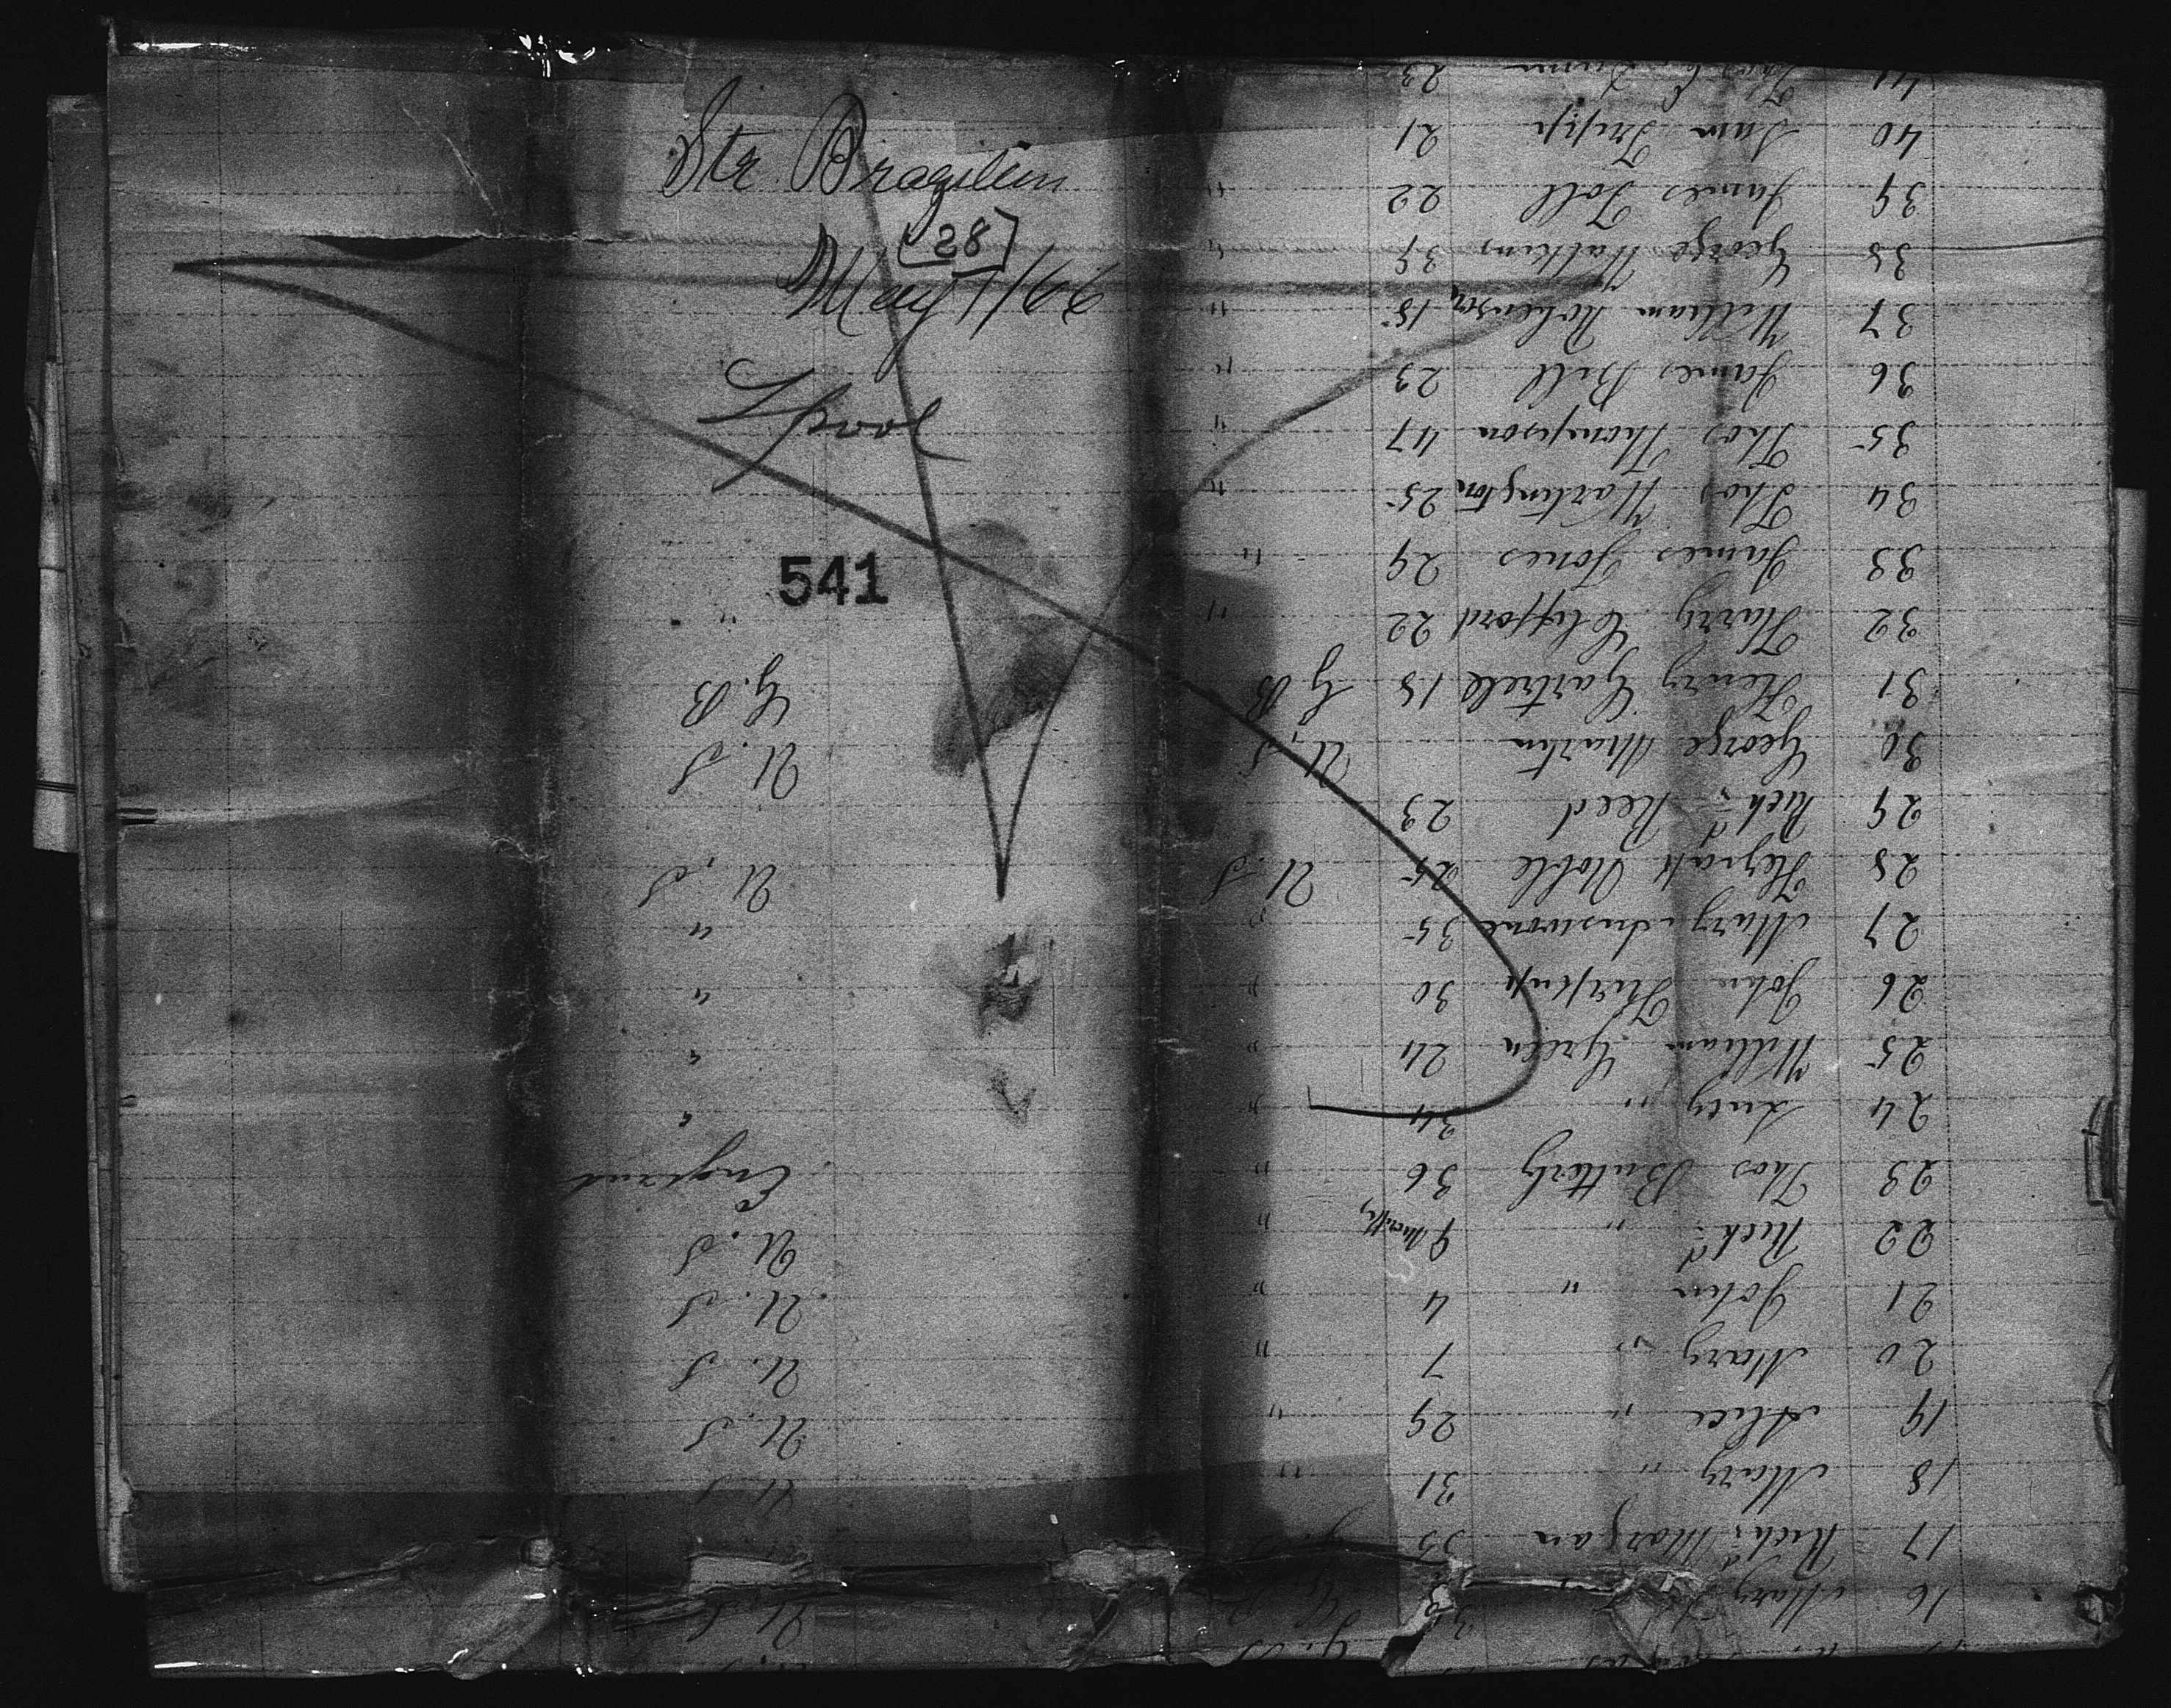 Str Brazilian
[28]
May 1/66
Lpool
541
16 Mary
17 Richd Morgan 35
18 Mary " 31 " U.S
19 Alice " 29 " U.S
20 Mary " 7 " U.S
21 John " 4 " U.S
22 Richd " 9 months " U.S
23 Thos Butterly 36 " England
24 Lucy " 34 " "
25 William Green 24 " "
26 John 30 " "
27 Mary 35 " "
28 Noble 25 U.S U.S
29 Richd Reed 23
30 George Martin U.S U.S
31 Henry Gartrell 18 G.B G.B
32 Harry Clifford 22 " "
33 James Jones 29 "
34 Thos Hartington 25 "
35 Thos Thompson 47 "
36 James Bell 23 "
37 William Robinson 18 "
38 George Watkins 39 "
39 James Toll 22 "
40 Sam Tripp 21
41 23